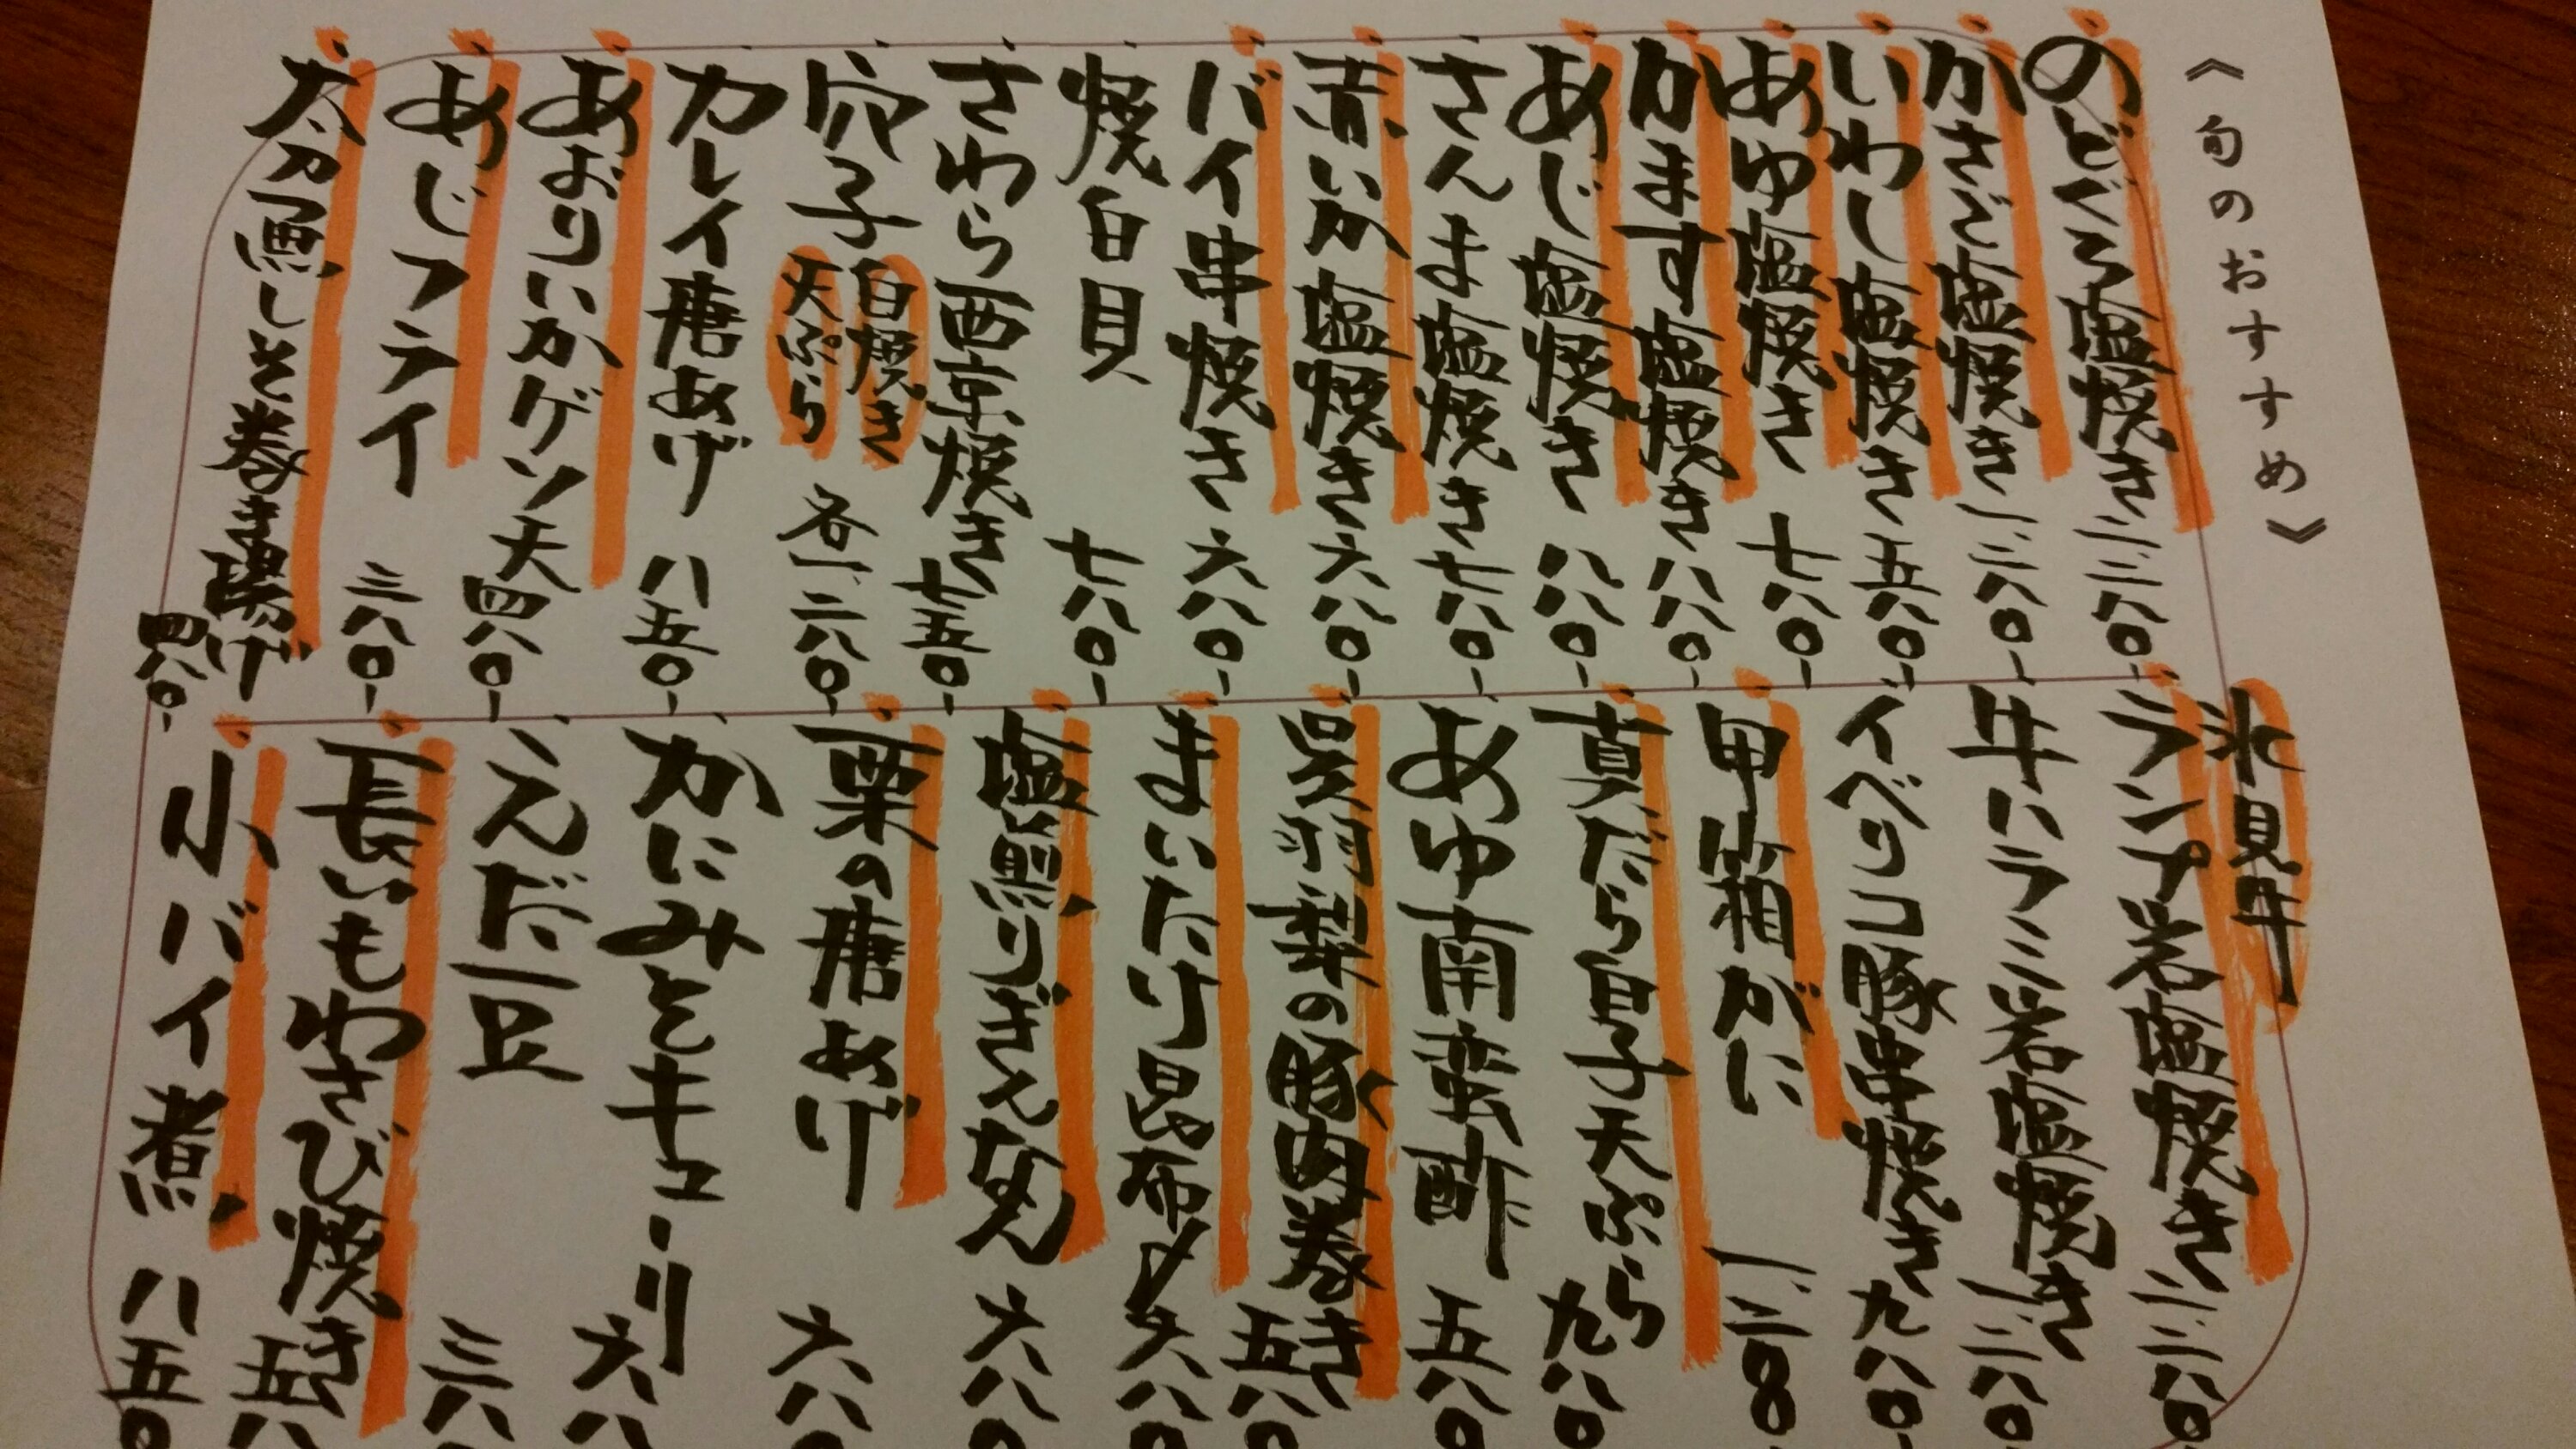 《旬のおすすめ》
のどぐろ塩焼き 二、二八〇-
かさご塩焼き 一、二八〇-
いわし塩焼き 五八〇-
あゆ塩焼き 七八〇-
かます塩焼き 八八〇-
あじ塩焼き 八八〇-
さんま塩焼き 七八〇-
赤いか塩焼き 六八〇-
バイ串焼き 六八〇-
焼白貝 七八〇-
さわら西京焼き 七五〇-
穴子 白焼き 天ぷら 各一、二八〇-
カレイ唐あげ 八五〇-
あおりいかゲソ天 四八〇-
あじフライ 三八〇-
太刀魚しそ巻き揚げ 四八〇-
氷見牛
ランプ岩塩焼き 二、二八〇-
牛ハラミ岩塩焼き 一、二八〇-
イベリコ豚串焼き 九八〇-
甲箱がに 一、二八〇
真だら白子天ぷら 九八〇
あゆ南蛮酢 五八〇
呉羽梨の豚肉巻き 五八〇
まいたけ昆布〆 六八〇
塩煎りぎんなん 六八〇
栗の唐あげ 六八
かにみとキューリ 六八
えだ豆 三八
長いもわさび焼き 五八
小バイ煮 八五〇